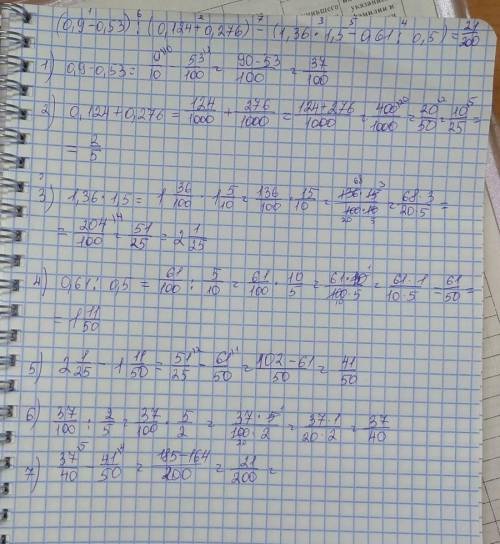 (0,9-0,53) : (0,124+0,276) - (1,36 · 1,5 - 0,61 : 0,5) = 21/200
1) 0,9-0,53 = 9/10 - 53/100 = (90-53)/100 = 37/100
2) 0,124+0,276 = 124/1000 + 276/1000 = (124+276)/1000 = 400/1000 = 20/50 = 10/25 =
= 2/5
3) 1,36 · 1,5 = 1 36/100 · 1 5/10 = 136/100 · 15/10 = (136·15)/(100·10) = (68·3)/(20·5) =
= 204/100 = 51/25 = 2 1/25
4) 0,61 : 0,5 = 61/100 : 5/10 = 61/100 · 10/5 = (61·10)/(100·5) = (61·1)/(10·5) = 61/50 =
= 1 11/50
5) 2 1/25 - 1 11/50 = 51/25 - 61/50 = (102-61)/50 = 41/50
6) 37/100 : 2/5 = 37/100 · 5/2 = (37·5)/(100·2) = (37·1)/(20·2) = 37/40
7) 37/40 - 41/50 = (185-164)/200 = 21/200 =